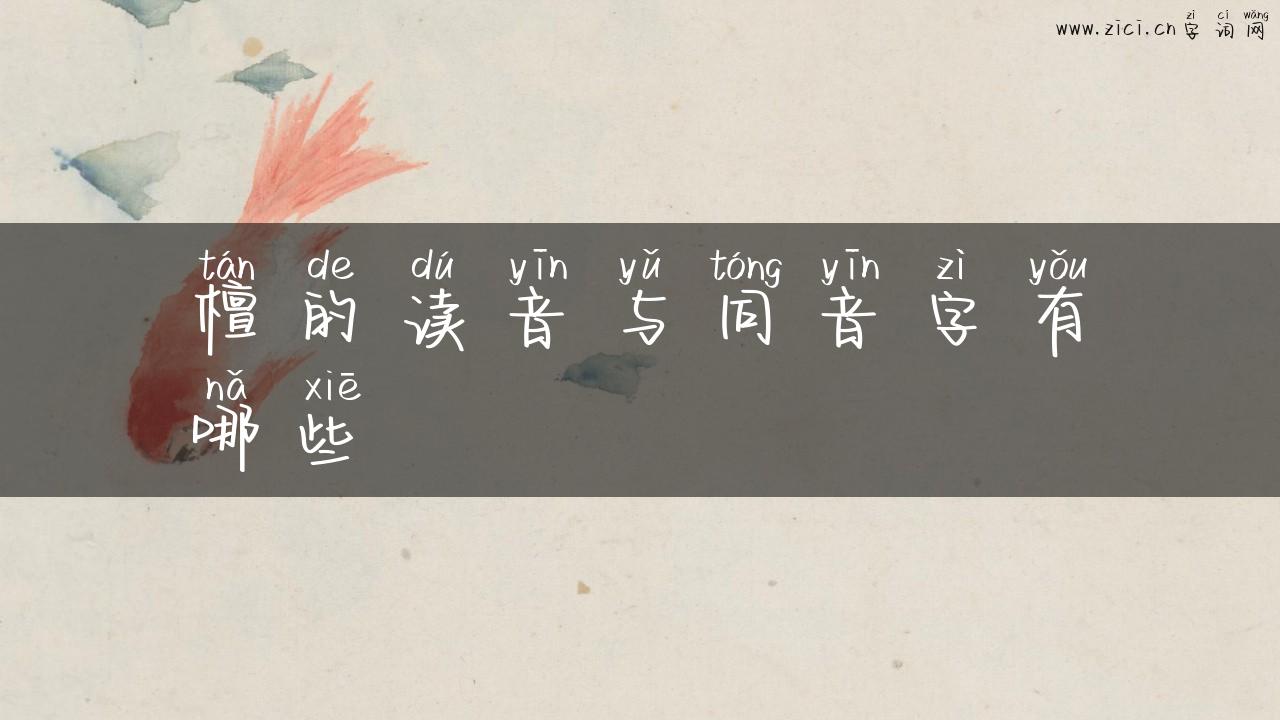 zì cí wǎng
www.zici.cn 字词网
tán de dú yīn yǔ tóng yīn zì yǒu
檀的读音与同音字有
nǎ xiē
哪些